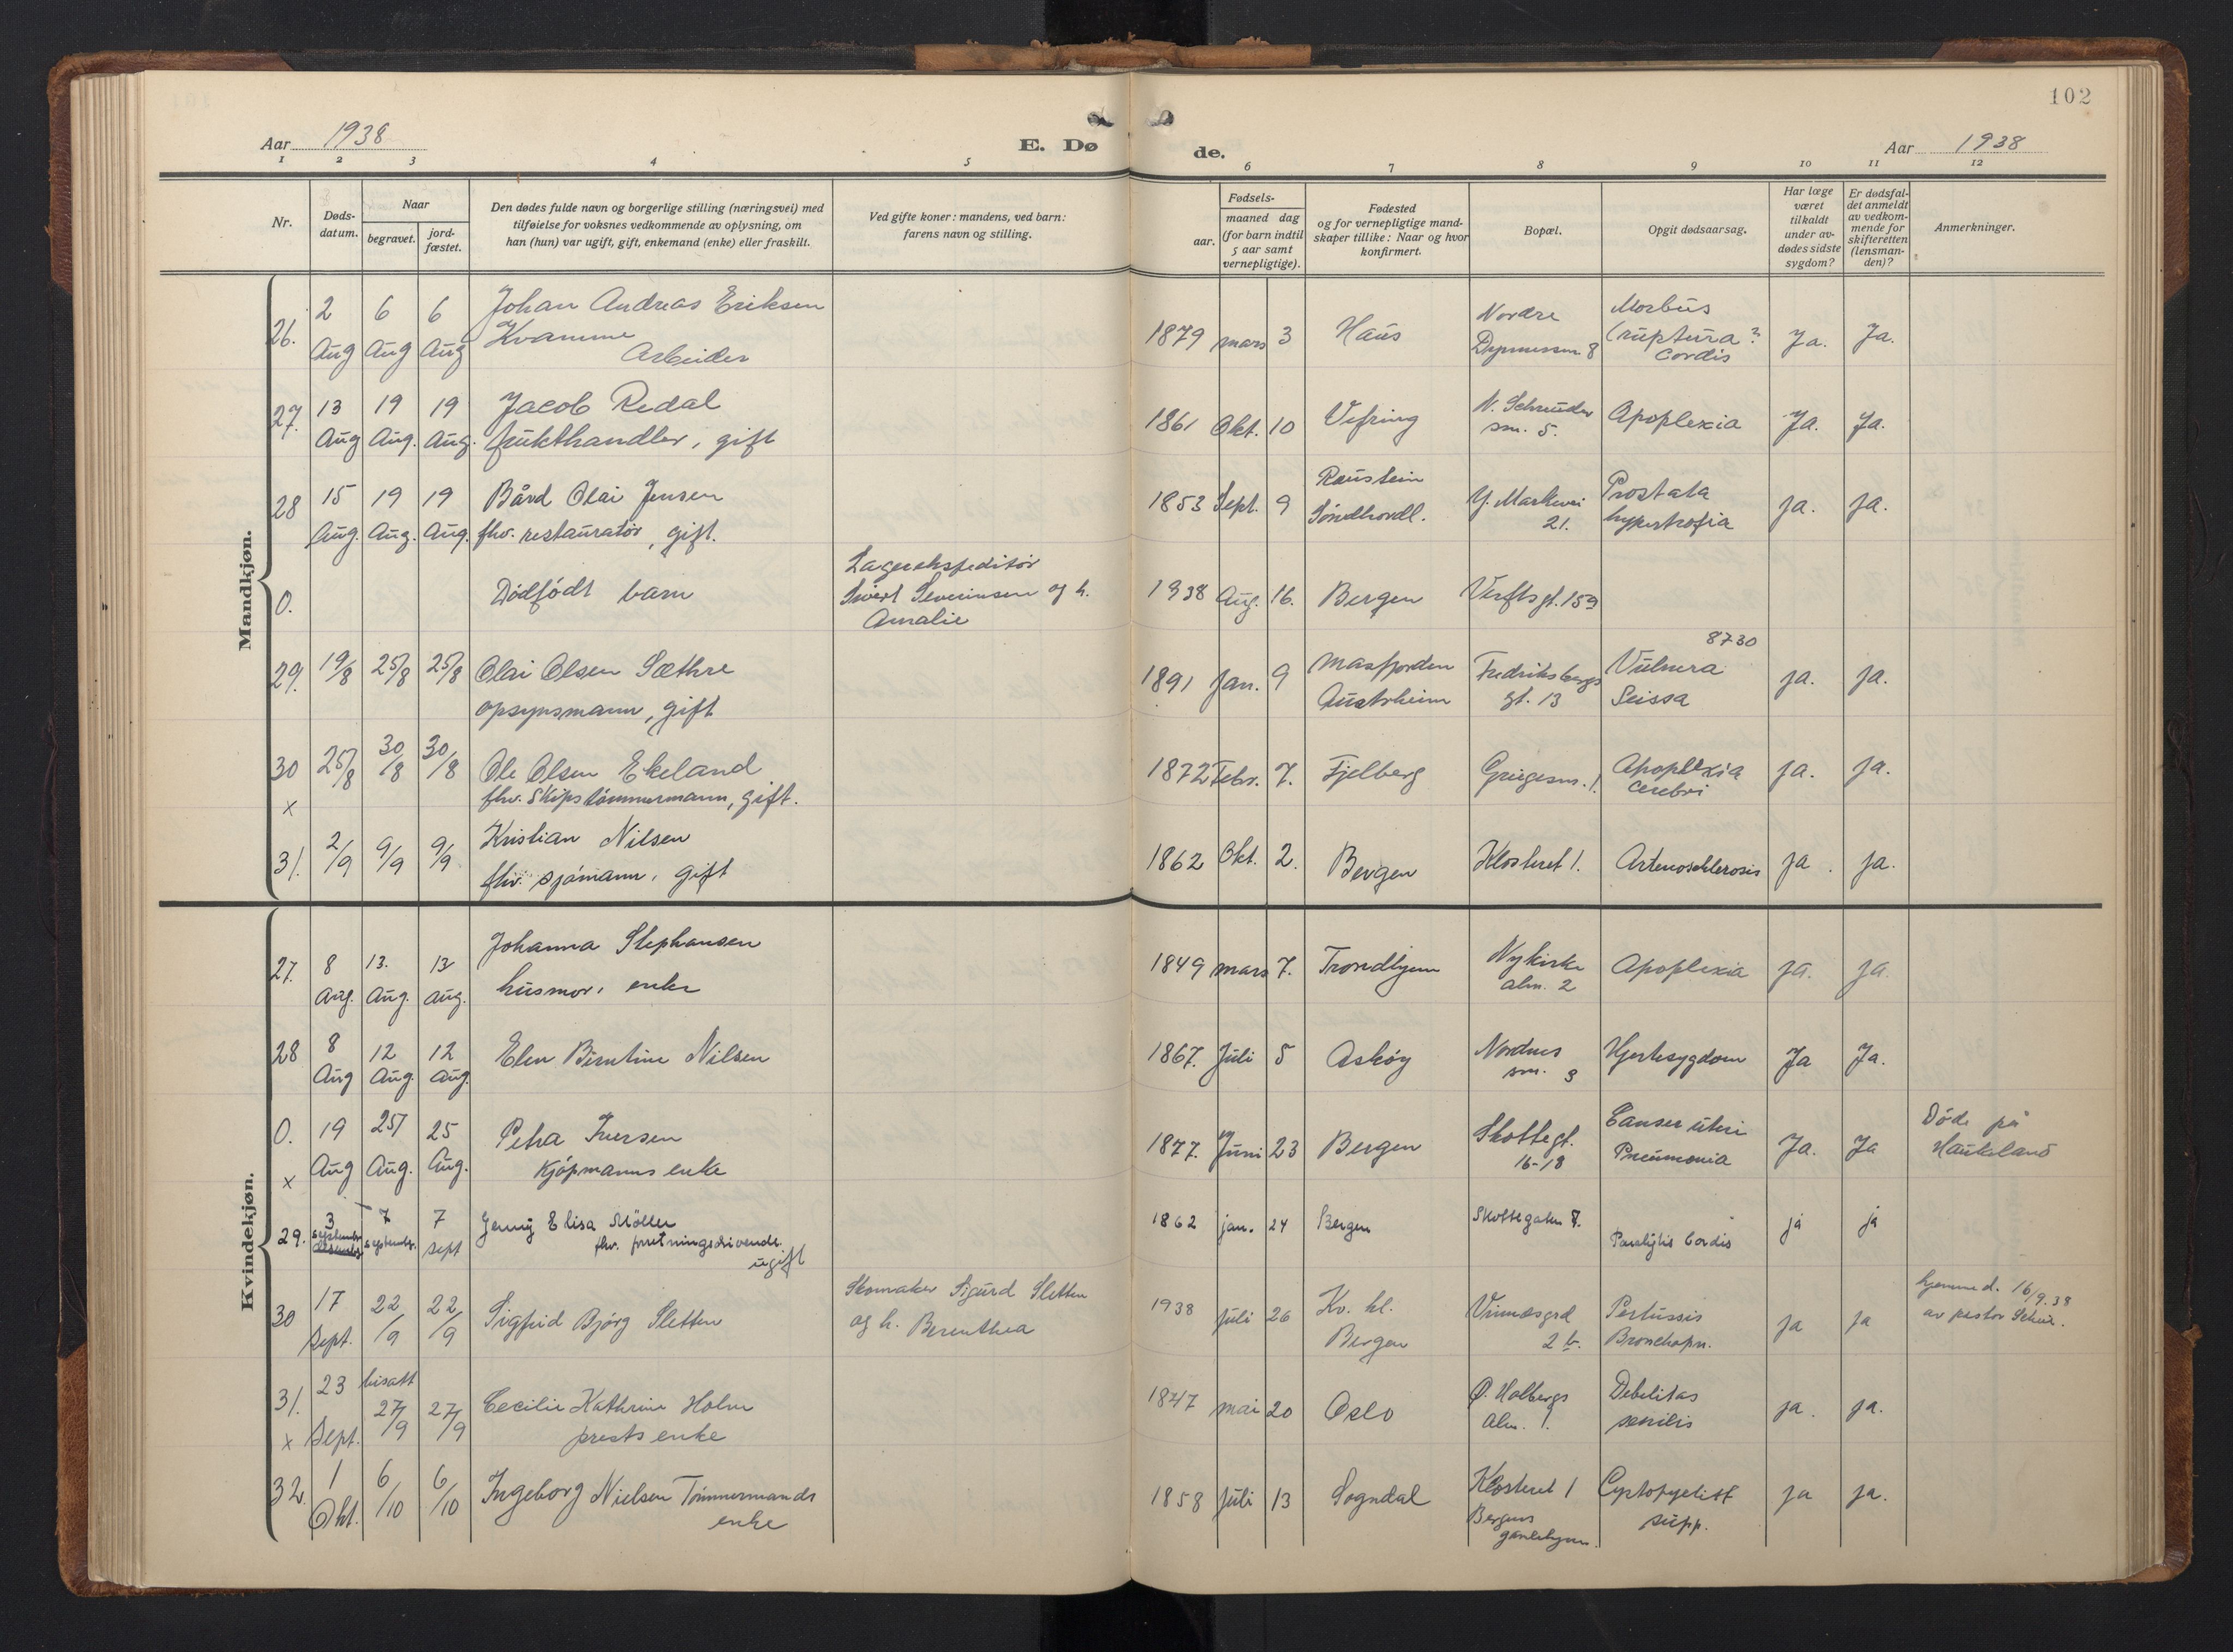 102
Aar 1938
E. Døde.
Aar 1938
1 2 3 4 5 6 7 8 9 10 11 12
Nr.
Døds-
datum.
Naar
begravet.
jord-
fæstet.
Den dødes fulde navn og borgerlige stilling (næringsvei) med
tilføielse for voksnes vedkommende av oplysning, om
han (hun) var ugift, gift, enkemand (enke) eller fraskilt.
Ved gifte koner: mandens, ved barn:
farens navn og stilling.
Fødsels-
aar.
maaned dag
(for barn indtil
5 aar samt
vernepligtige).
Fødested
og for vernepligtige mand-
skaper tillike: Naar og hvor
konfirmert.
Bopæl.
Opgit dødsaarsag.
Har læge
været
tilkaldt
under av-
dødes sidste
sygdom?
Er dødsfal-
det anmeldt
av vedkom-
mende for
skifteretten
(lensman-
den)?
Anmerkninger.
Mandkjøn.
26. 2 Aug 6 Aug 6 Aug
Johan Andreas Eriksen
Kvamme
Arbeider
1879 mars 3 Haus
Nordre
8
Morbus
(ruptura?
Cordis
Ja. Ja.
27. 13 Aug 19 Aug. 19 Aug.
Jacob Redal
frukthandler, gift
1861 Okt. 10 Vefring
N. Schrøder
sm. 5.
Apoplexia
Ja. Ja.
28 15 Aug. 19 Aug. 19 Aug.
Bård Olai Jensen
fhv. restauratør, gift.
1853 Sept. 9
Søndhordl.
Y. Markevei
21.
Prostata
hypertrofia
ja. ja.
0.
Dødfødt barn
Lagerekspeditør
Sivert Severinsen og h.
Amalie
1938 Aug. 16. Bergen Verftsgt. 159
29. 19/8 25/8 25/8
Olai Olsen Sæthre
opsynsmann, gift
1891 Jan. 9
Masfjorden
Austrheim
Fredriksbergs
gt. 13
8730
Vulnera
Scissa
ja. ja.
30 x 25/8 30/8 30/8
Ole Olsen Ekeland
fhv. Skipstømmermann, gift.
1872 Febr. 7. Fjelberg Griegesm. 1.
Apoplexia
cerebri
ja. ja.
31. 2/9 9/9 9/9
Kristian Nilsen
fhv. sjømann, gift
1862 Okt. 2. Bergen Klosteret 1. Arterosklerosis ja. ja.
Kvindekjøn.
27. 8 aug. 13. Aug. 13 aug.
Johanna Stephansen
husmor, enke
1849 mars 7. Trondhjem
Nykirke
alm. 2
Apoplexia
ja. ja.
28 8 Aug 12 Aug. 12 aug.
Elen Berntine Nilsen
1867. Juli 5 Askøy
Nordnes
sm. 3
Hjertesygdom
Ja Ja.
0. x 19 Aug 25 Aug. 25 Aug.
Petra Iversen
Kjøpmanns enke
1877. Juni 23 Bergen
Skottegt.
16-18
Canser uteri
Pneumonia
Ja. Ja
Døde på
Haukeland
29. 3 september 7 september. 7 sept
Jenny Elisa Møller
fhv. forretningsdrivende.
ugift
1862 jan. 24 Bergen Skottegaten 7. Paralysis Cordis ja ja
30 17 Sept. 22/9 22/9
Sigfrid Bjørg Sletten
Skomaker Sigurd Sletten
og h. Berenthea
1938 juli 26
Kv. kl.
Bergen
2 b.
Pertussis
Bronchopn.
ja ja
hjemmed. 16/9.38
av pastor
31. x 23 Sept. bisatt 27/9 27/9
Cecilie Kathrine Holm
prests enke
1847 mai 20 Oslo
Ø. Holbergs
Alm. 1.
Debilitas
senilis
ja. ja.
32. 1 Okt. 6/10 6/10
Ingeborg Nielsen Tømmermands
enke
1858 juli 13 Sogndal
Klosteret 1
Bergens
gamlehjem.
Cystopyelitt
supp.
ja ja.